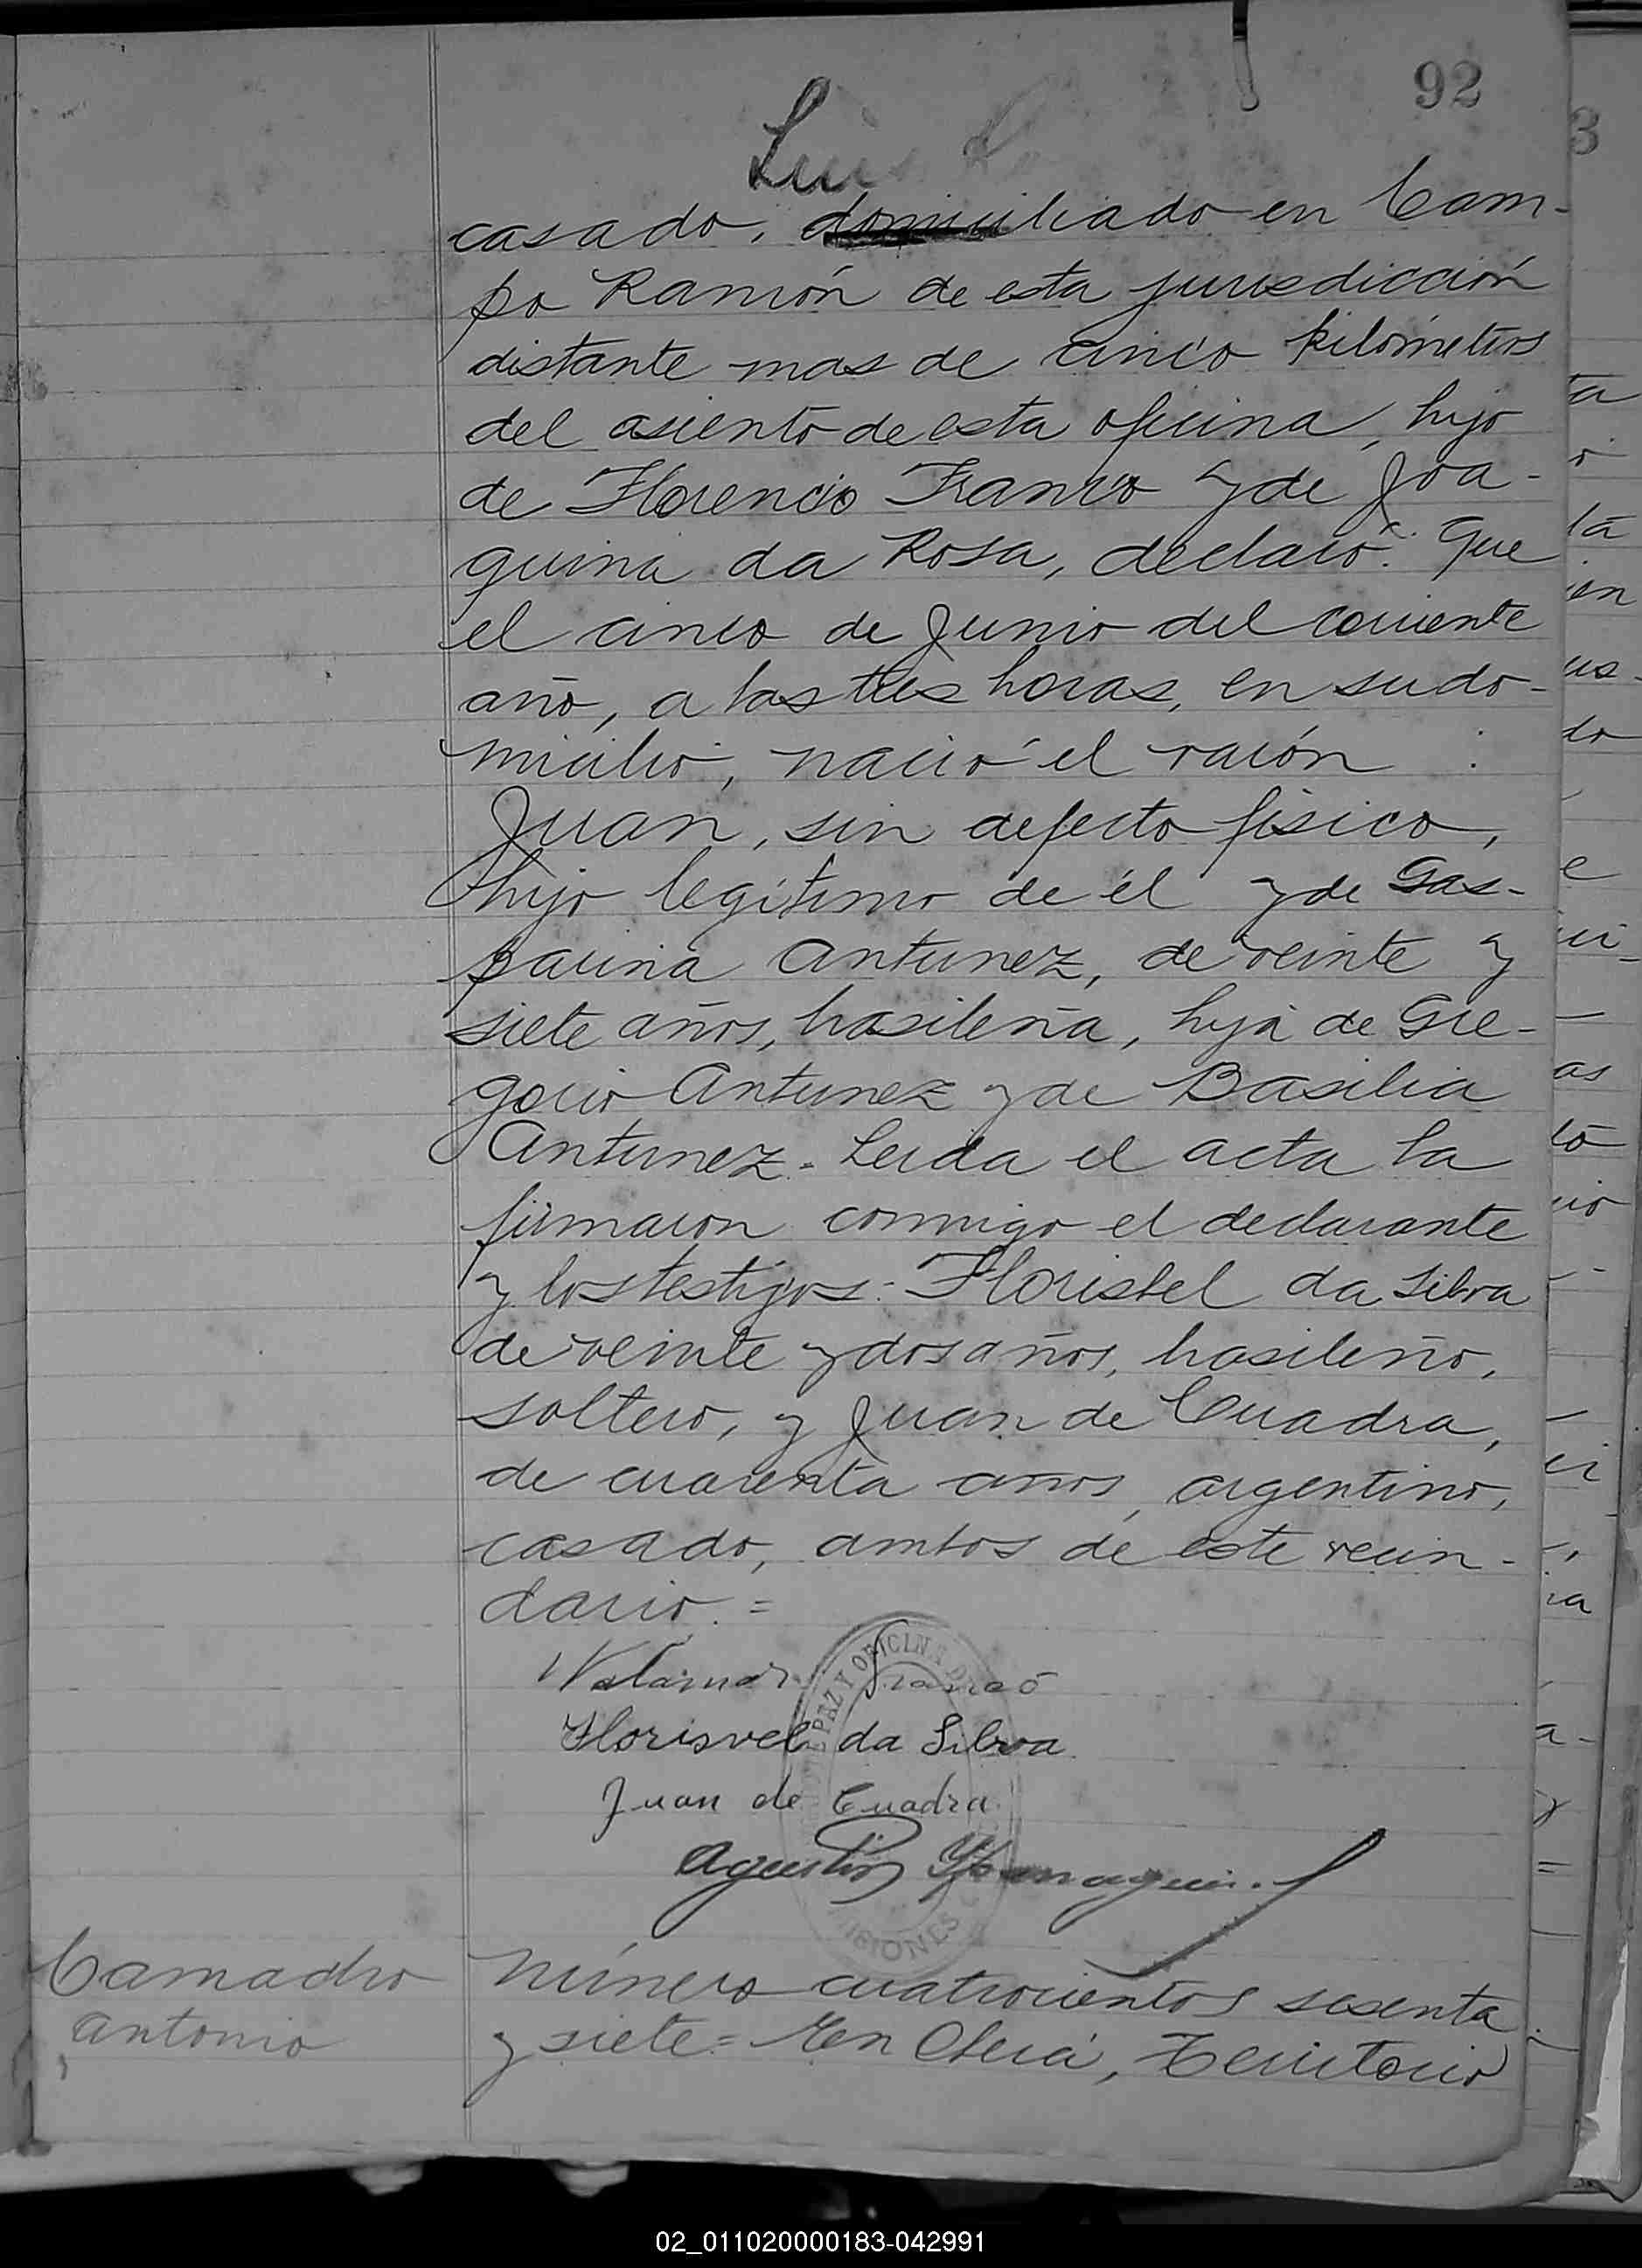 92
Luis
casado, domiciliado en Cam-
po Ramón de esta jurisdicción
distante mas de cinco kilómetros
del asiento de esta oficina, hijo
de Florencio Franco y de Joa-
quina da Rosa, declaró: Que
el cinco de Junio del corriente
año, a las tres horas, en su do-
micilio, nació el varón :
Juan, sin defecto físico,
hijo legítimo de él y de Gas-
parina Antunez, de veinte y
siete años, brasileña, hija de Gre-
gorio Antunez y de Basilia
Antunez.- Leida el acta la
firmaron conmigo el declarante
y los testigos: Florisbel da Silva
de veinte y dos años, brasileño,
soltero, y Juan de Cuadra,
de cuarenta años, argentino,
casado, ambos de este vecin-
dario.=
Franco
Florisvel da Silva
Juan de Cuadra
Agustin
PAZ Y OFICINA
MISIONES
Camadro
Antonio
Número cuatrocientos sesenta
y siete= En Oberá, Territorio
02_011020000183-042991